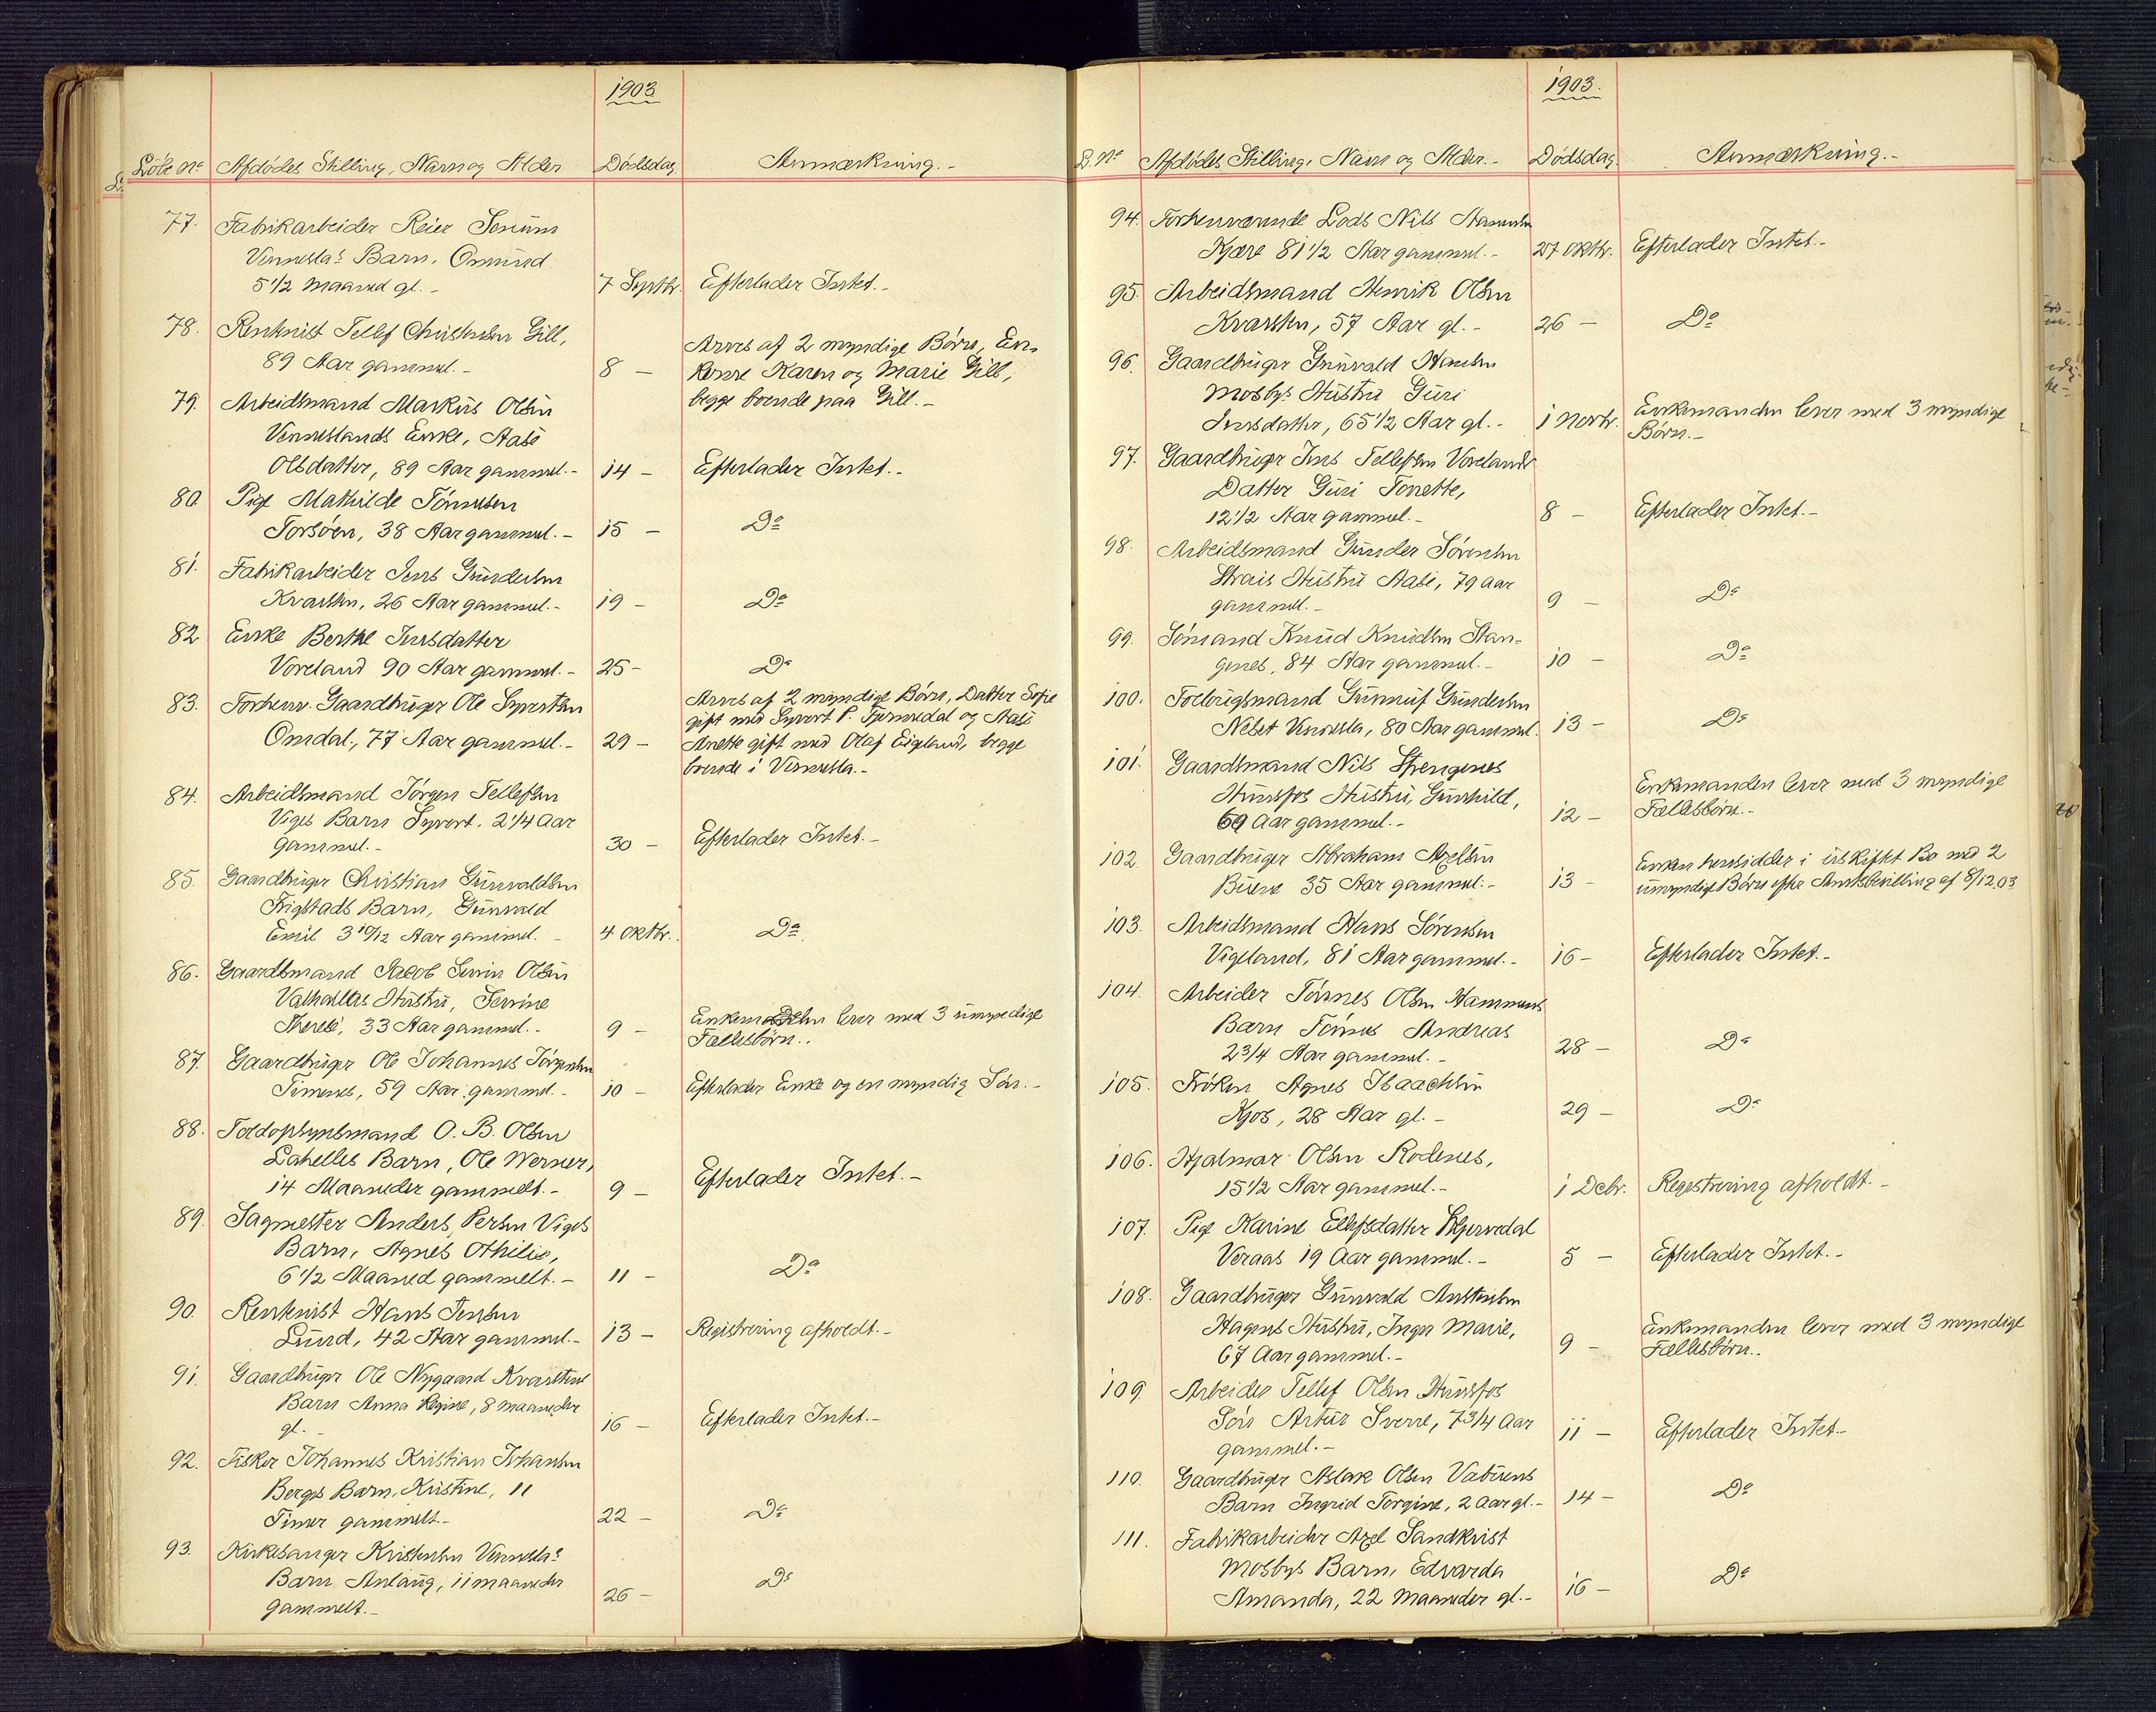 1903
Löbe No Afdödes Stilling, Navn og Alder Dödsdag Anmærkning.-
77. Fabrikarbeider Reier Jonums
Vennesla's Barn, Omund
5 1/2 Maaned gl.- 7 Septbr. Efterlader Intet.-
78. Rentenist Tellef Christensen Gill,
89 Aar gammel.- 8 - Arves af 2 myndige Börn, En-
kerne Karen og Marie Gill,
begge boende paa Gill.-
79. Arbeidsmand Markus Olsen
Venneslands Enke, Aase
Olsdatter, 89 Aar gammel.- 14 - Efterlader Intet.-
80. Pige Mathilde Tönnesen
Torsöen, 38 Aar gammel.- 15 - Do
81. Fabrikarbeider Jens Gundersen
Kvarsten, 26 Aar gammel.- 19 - Do
82 Enke Berthe Jensdatter
Voreland 90 Aar gammel.- 25 - Do
83. Forhenv. Gaardbruger Ole Syvertsen
Omdal, 77 Aar gammel.- 29 -
Arves af 2 myndige Börn, Datter Sofie
gift med Syvert P. Fjermedal og Aase
Anette gift med Olaf Eigeland, begge
boende i Vennesla.-
84. Arbeidsmand Jörgen Tellefsen
Viges Barn Syvert, 2 1/4 Aar
gammel.- 30 - Efterlader Intet.-
85. Gaardbruger Christian Gunvaldsen
Frigstads Barn, Gunvald
Emil 3 10/12 Aar gammel.- 4 Oktbr. Do
86. Gaardsmand Jacob Severin Olsen
Valhallas Hustru, Serine
Therese, 33 Aar gammel.- 9 - Enkemanden lever med 3 umyndige
Fællesbörn..
87. Gaardbruger Ole Johannes Jörgensen
Timenes, 59 Aar gammel.- 10 - Efterlader Enke og en myndig Sön.-
88. Toldopsynsmand O. B. Olsen
Lahelles Barn, Ole Werner,
14 Maaneder gammelt.- 9 - Efterlader Intet.-
89. Sagmester Anders Persen Viges
Barn, Agnes Othilie,
6 1/2 Maaned gammelt.- 11 - Do
90. Rentenist Hans Jensen
Lund, 42 Aar gammel.- 13 - Registrering afholdt.-
91. Gaardbruger Ole Nygaard Kvarstens
Barn Anna Regine, 8 maaneder
gl.- 16 - Efterlader Intet.-
92. Fisker Johannes Kristian Johansen
Berges Barn, Kristine, 11
Timer gammelt.- 22 - Do
93. Kirkesanger Kristensen Vennesla's
Barn Anlaug, 11 maaneder
gammelt.- 26 - Do
1903.
L. No Afdödes Stilling, Navn og Alder.- Dödsdag Anmærkning.-
94. Forhenværende Lods Nils
Kjære 81 1/2 Aar gammel.- 27 Oktbr. Efterlader Intet.-
95. Arbeidsmand Henrik Olsen
Kvarsten, 57 Aar gl.- 26 - Do
96. Gaardbruger Gunvald Hansen
Mosbys Hustru Guri
Jensdatter, 65 1/2 Aar gl.- 1 Novbr. Enkemanden lever med 3 myndige
Börn.-
97. Gaardbruger Jens Tellefsen Vorelands
Datter Guri Tonette,
12 1/2 Aar gammel.- 8 - Efterlader Intet.-
98. Arbeidsmand Gunder Sörensen
Strais Hustru Aase, 79 aar
gammel.- 9 - Do
99. Sömand Knud Knudsen Stan-
genes, 84 Aar gammel.- 10 - Do
100. Föderaadsmand Gunnuf Gundersen
Nebet Vennesla, 80 Aar gammel. 13 - Do
101. Gaardsmand Nils Stangenes
Hunsfos Hustru, Gunhild,
69 Aar gammel.- 12 - Enkemanden lever med 3 myndige
Fællesbörn.-
102. Gaardbruger Abraham Axelsen
Buene 35 Aar gammel.- 13 - Enken hensidder i uskiftet Bo med 2
umyndige Börn efter Amtsbevilling af 8/12.03
103. Arbeidsmand Hans Sörensen
Vigeland, 81 Aar gammel.- 16 - Efterlader Intet.-
104. Arbeider Tönnes Olsen Hammens
Barn Tönnes Andreas
2 3/4 Aar gammel.- 28 - Do
105. Fröken Agnes Isaachsen
Kjos, 28 Aar gl.- 29 - Do
106. Hjalmar Olsen Rodenes,
15 1/2 Aar gammel.- 1 Debr. Registrering afholdt.-
107. Pige Karine Ellefsdatter
Veraas 19 Aar gammel.- 5 - Efterlader Intet.-
108. Gaardbruger Gunvald Anstensen
Hagens Hustru, Inger Marie,
67 Aar gammel.- 9 - Enkemanden lever med 3 myndige
Fællesbörn..
109. Arbeider Tellef Olsen Hunsfos
Sön Artur Sverre, 7 3/4 Aar
gammel.- 11 - Efterlader Intet.-
110. Gaardbruger Aslak Olsen Vatnens
Barn Ingrid Torgine, 2 Aar gl.- 14 - Do
111. Fabrikarbeider Axel Sandkvist
Mosbys Barn, Edvarda
Amanda, 22 Maaneder gl.- 16 - Do